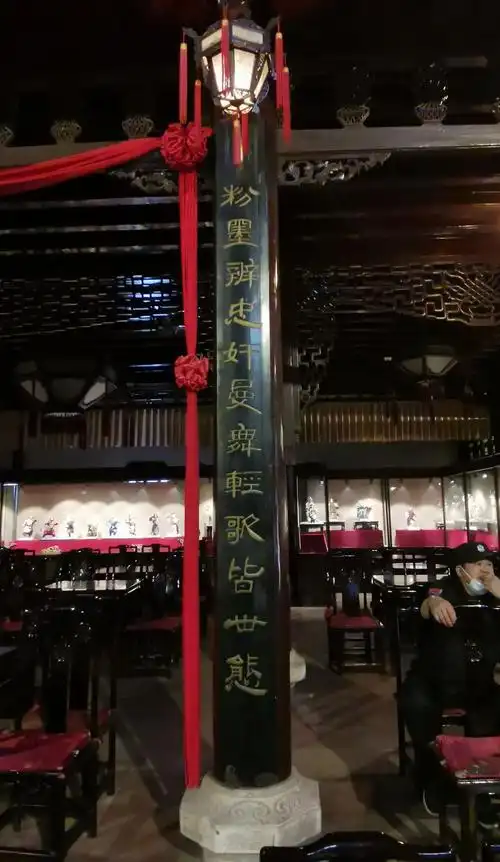 粉墨辨忠奸曼舞輕歌皆世態